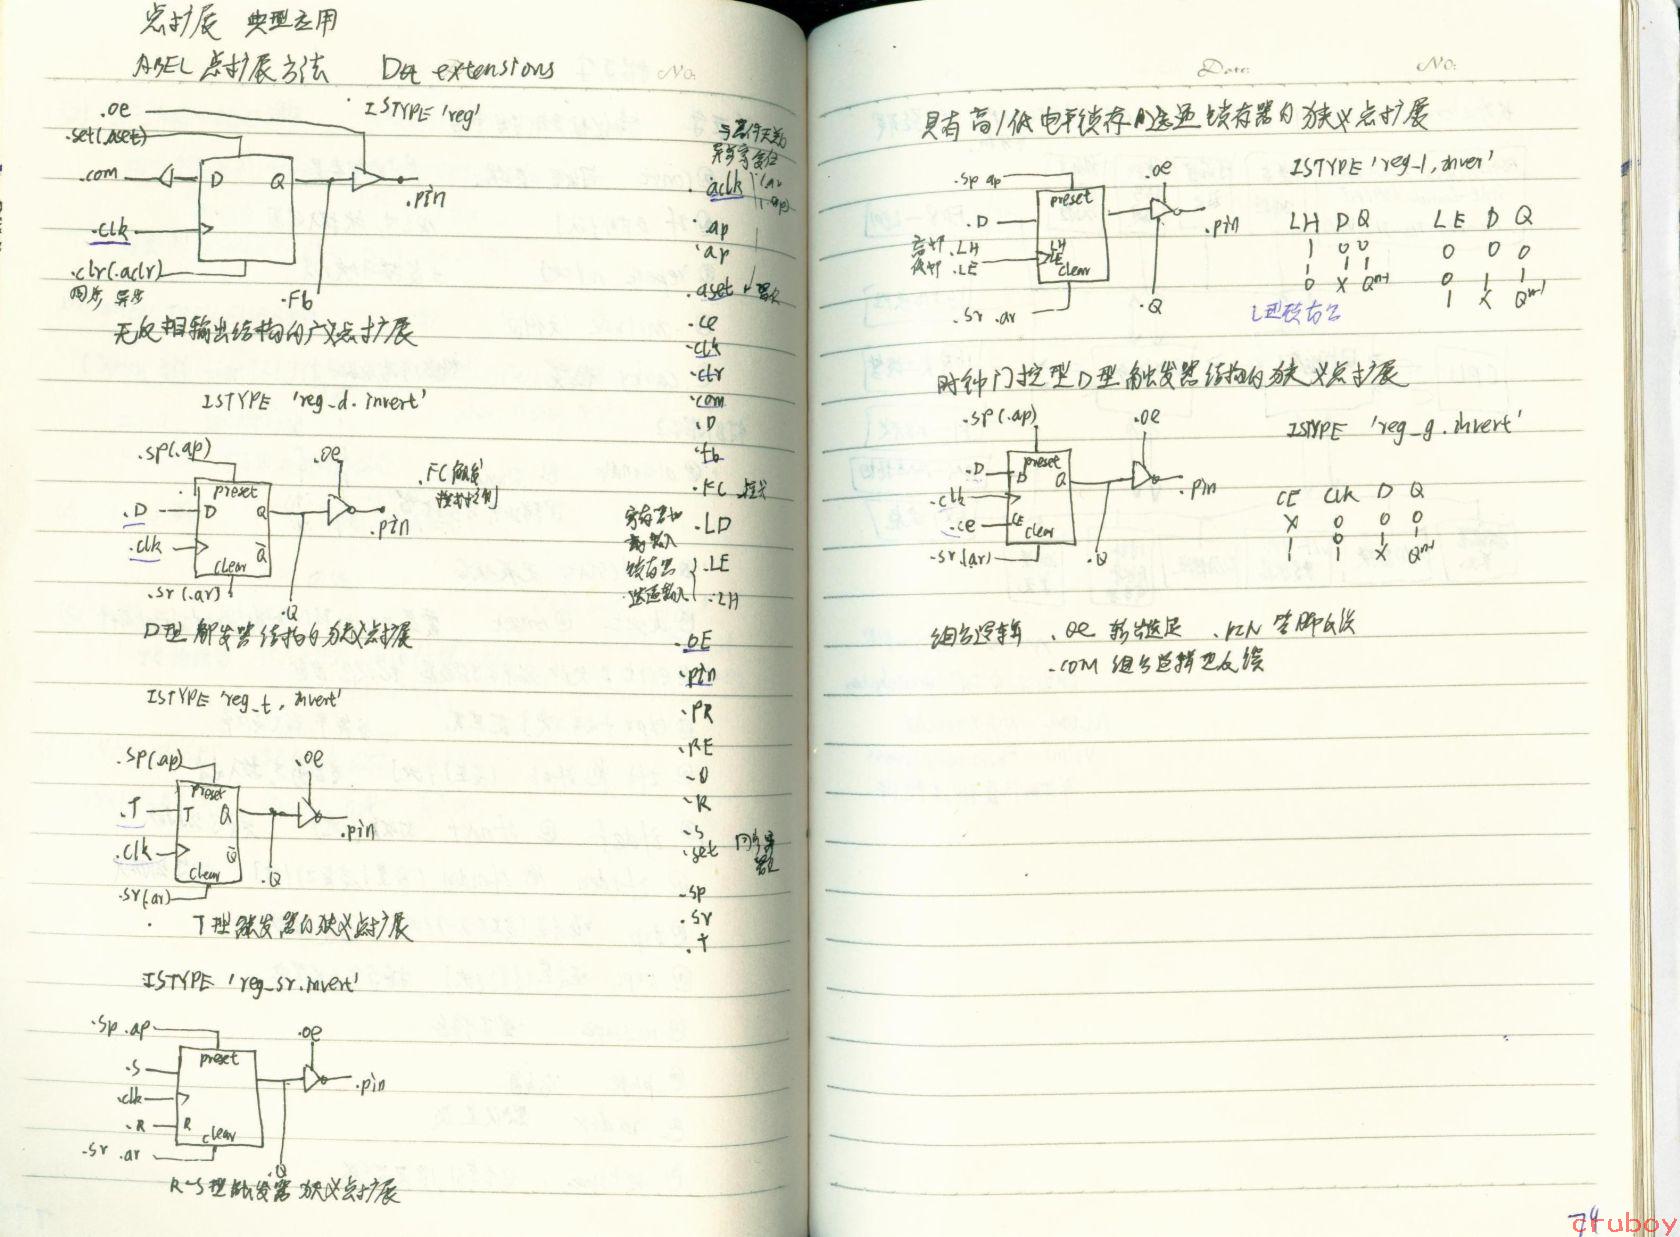 点扩展 典型应用
ABEL 点扩展方法 Dot extensions
No:
.oe
ISTYPE 'reg'
.set(.aset)
.com
D Q
.pin
.clk
.clr(.aclr)
同步 异步
.Fb
无反相输出结构的广义点扩展
ISTYPE 'reg_d.invert'
.sp(.ap)
.oe
preset
.D
D Q
.pin
.clk
Q
clear
.sr(.ar)
.Q
.FC 触发
模式控制
D型触发器结构的狭义点扩展
ISTYPE 'reg_t, invert'
.sp(.ap)
.oe
preset
.T
T Q
.pin
.clk
Q
clear
.sr(.ar)
.Q
T型触发器的狭义点扩展
ISTYPE 'reg_sr.invert'
.sp .ap
.oe
preset
.S
.pin
.clk
.R
R
clear
.sr .ar
.Q
R-S型触发器 狭义点扩展
.aclk
.ap
.ap
.aset
.ce
.clk
.clr
.com
.D
.fb
.FC
.LD
锁存器
.LE
.LH
.OE
.pin
.PR
.RE
.Q
.R
.S
.set
.sp
.sr
.T
Date:
No:
具有高/低电平锁存的透通锁存器的狭义点扩展
ISTYPE 'reg_l, invert'
.sp ap
.oe
preset
.D
.pin
.LH
LH
.LE
LE
clear
.sr .ar
.Q
LH D Q
1 0 0
1 1 1
0 X Qn-1
LE D Q
0 0 0
0 1 1
1 X Qn-1
L型锁存器
时钟门控型D型触发器结构的狭义点扩展
ISTYPE 'reg_g.invert'
.sp(.ap)
.oe
preset
.D
D Q
.pin
.clk
.ce
CE
clear
.sr(.ar)
.Q
CE CLK D Q
X 0 0 0
1 0 1 1
1 1 X Qn-1
组合逻辑 .oe 输出使能 .PIN 管脚反馈
.COM 组合逻辑型反馈
74
cruboy